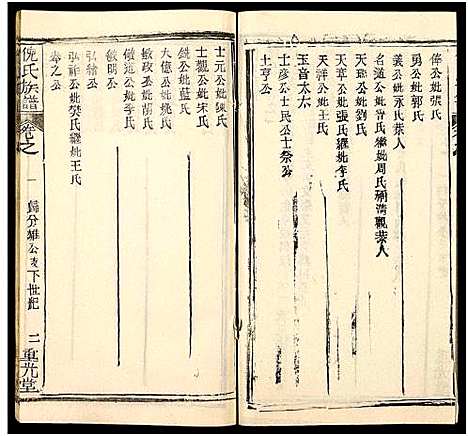 俸公妣張氏
勇公妣郭氏
義公妣永氏葉人
名道公妣曾氏繼妣周氏祠清觀葉人
天璐公妣劉氏
天章公妣張氏繼妣李氏
天祥公妣王氏
玉音太太
士彦公士民公士祭公
士亨公
士元公妣陳氏
士觀公妣宋氏
銑公妣藍氏
大億公妣
敏政公妣蕭氏
儀道公妣李氏
儀明公
弘緒公
弘祥公妣樊氏繼妣王氏
奉之公
倪氏族譜
卷之一
歸分雄公支下世紀
二
重光堂